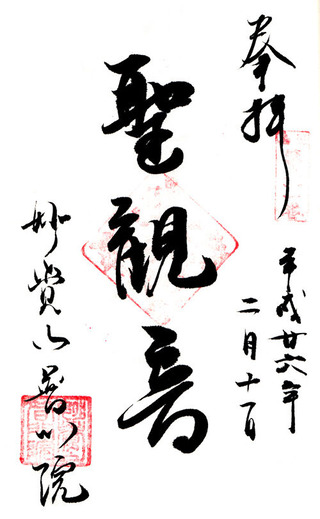 奉拝
平成廿六年
二月十一日
聖観音
妙覚山普門院